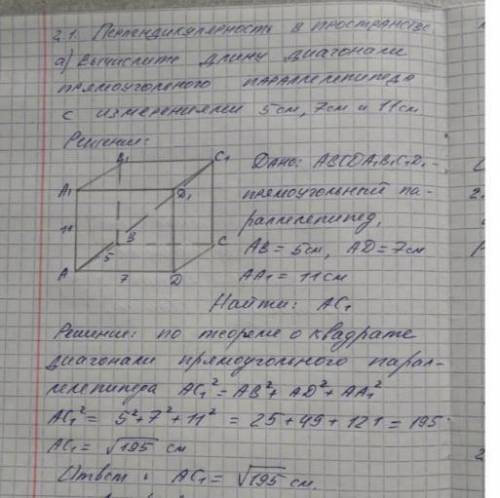 2.1. Перпендикулярность в пространстве
а) Вычислите длину диагонали
прямоугольного параллелепипеда
с измерениями 5см, 7см и 11см
Решение:
B1 C1
A1 D1
11
B C
5
A 7 D
Дано: ABCDA1B1C1D1 -
прямоугольный па-
раллелепипед,
AB = 5см, AD = 7см
AA1 = 11см
Найти: AC1
Решение: по теореме о квадрате
диагонали прямоугольного парал-
лелепипеда AC1² = AB² + AD² + AA1²
AC1² = 5² + 7² + 11² = 25 + 49 + 121 = 195
AC1 = √195 см
Ответ: AC1 = √195 см.